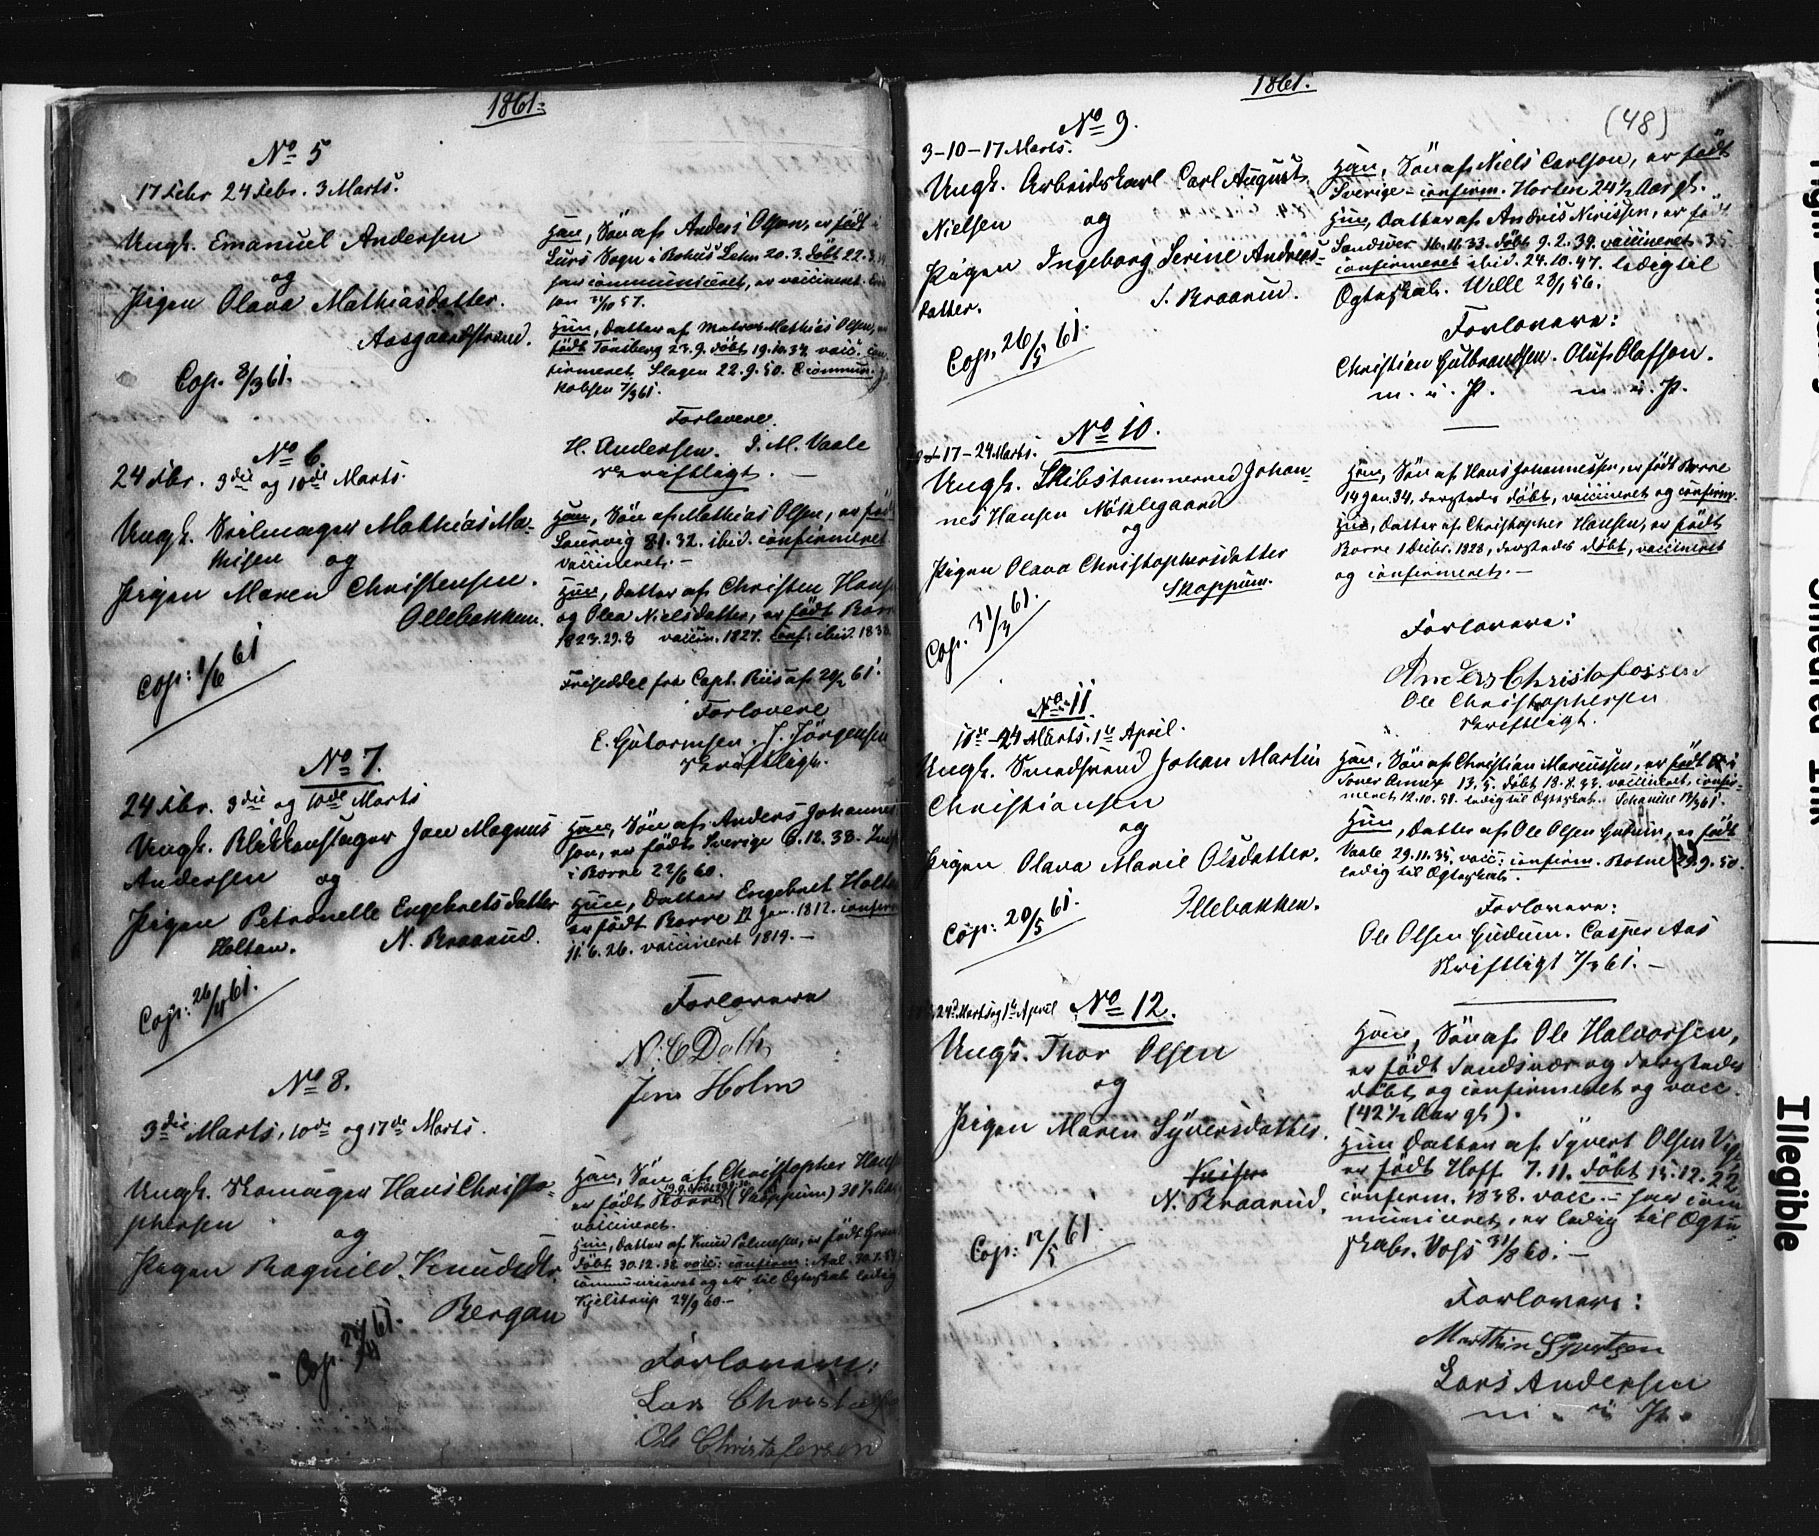 1861.
No 5
17 Febr 24 Febr. 3 Marts.
Ungk. Emanuel Andersen
og
Pigen Olava Mathiasdatter.
Aasgaardstrand.
Cop. 8/3 61.
Han, Søn af Anders Olson, er født i
Lurs Sogn i Bohus Lehn 20.3. døbt 22.3.
har communiceret, er vaccineret.
Hun, Datter af Matros Mathias Olsen, er
født Tönsberg 23.9. døbt 19.10.34. vacc. con-
firmeret Slagen 22.9.50. Commun.
kobsen 7/3 61.
Forlovere.
H. Andersen. I. M. Vaale
skriftligt. —
No 6
24 Fbr. 3die og 10de Marts.
Ungk. Seilmager Mathias Ma-
thisen og
Pigen Maren Christensen.
Ollebakken.
Cop: 1/6 61
Han, Søn af Mathias Olsen, er fød
Laurvig 31. 32. ibid. confirmeret
vaccineret. —
Hun, Datter af Christen Hans
og Olea Nielsdatter, er født Borre
1823. 29. 8 vaccin. 1827. conf: ibid. 1838.
Friseddel fra Capt. Riis af 20/2 61.
Forlovere
E. Gutormsen. J. Jörgensen
skriftligt.
No 7.
24 Fbr. 3die og 10de Marts
Ungk. Blikkenslager Jon Magnus
Andersen og
Pigen Petronelle Engebretsdatter
Holtan. N. Braarud.
Cop: 26/4 61.
Han, Søn af Anders Johannes
sen, er født Sverige 6.12.38. Ind
i Borre 22/6 60.
Hun, Datter Engebret Holta
er født Borre 17 Jan. 1812. confirm
11.6.26. vaccineret 1819. —
Forlovere
N. C Dath
Jens Holm
No 8.
3die Marts, 10de og 17de Marts.
Ungk. Skomager Hans Christo-
phersen
og
Pigen Ragnild Knudsdtr.
Bergan
Cop. 61.
Han, Søn af Christopher Hans
er født Borre (Skoppum) 30 1/2 Aar
vaccineret.
Hun, Datter af Knud
døbt 30.12.32 vacc: confirm: Aal.
communiceret og er til Ægteskab ledig
Kjelstrup 24/9 60 —
Forlovere:
Lars Christ
Ole Christofersen
1861.
(48)
No 9.
3-10-17 Marts.
Ungk. Arbeidskarl Carl August
Nielsen og
Pigen Ingeborg Serine Andreas-
datter. S. Braarud.
Cop. 26/5 61.
Han, Søn af Niels Carlson, er født
Sverige — confirm. Horten 24 1/2 Aar gl.
Hun, Datter af Andreas, er født
Sandsver 16.11.33. døbt 9.2.34. vaccineret 35
confirmeret ibid. 24.10.47. ledig til
Ægteskab. Wille 23/1 56.
Forlovere:
Christian Gulbrandsen. Oluf Olafson.
m. i. P. m. i. P.
No 10.
17-24 Marts.
Ungk. Skibstømmermand Johan-
nes Hansen Nöklegaard
og
Pigen Olava Christophersdatter
Skoppum.
Cop. 31/3 61.
Han, Søn af Hans Johannessen, er født Borre
14 Jan. 34, dersteds døbt, vaccineret og confirm.
Hun, Datter af Christopher Hansen, er født
Borre 1 Decbr. 1828, dersteds døbt, vaccineret
og confirmeret. —
Forlovere:
Anders Christofossen
Ole Christophersen
skriftligt.
No 11
17de-24 Marts. 1ste April.
Ungk. Smedsvend Johan Martin
Christiansen
og
Pigen Olava Marie Olsdatter.
Ollebakken.
Cop: 20/5 61.
Han, Søn af Christian Marcussen, er født
13.5. døbt 18.8.33. vaccineret, confir-
meret 12.10.51. ledig til Ægteskab.
Hun, Datter af Ole Olsen Gudum, er født
Vaale 29.11.35, vacc: confirm. Botne 29.9.50.
ledig til Ægteskab.
Forlovere:
Ole Olsen Gudum. Casper Aas
Skriftligt 7/3 61. —
No 12.
24de Marts og 1ste April
Ungk. Thor Olsen
og
Pigen Maren Syversdatter.
N. Braarud.
Cop: 12/5 61.
Han, Søn af Ole Halvorsen,
er født Sandsvær og dersteds
døbt og confirmeret og vacc.
(42 1/2 Aar gl).
Hun Datter af Syvert Olsen
er født Hoff 7.11. døbt 15.12.22
confirm. 1838. vacc. — har com
municeret, er ledig til Ægte-
skab. Voss 31/8 60. —
Forlovere:
Marthin Syvertsen
Lars Andersen
m. i P.
Illegible